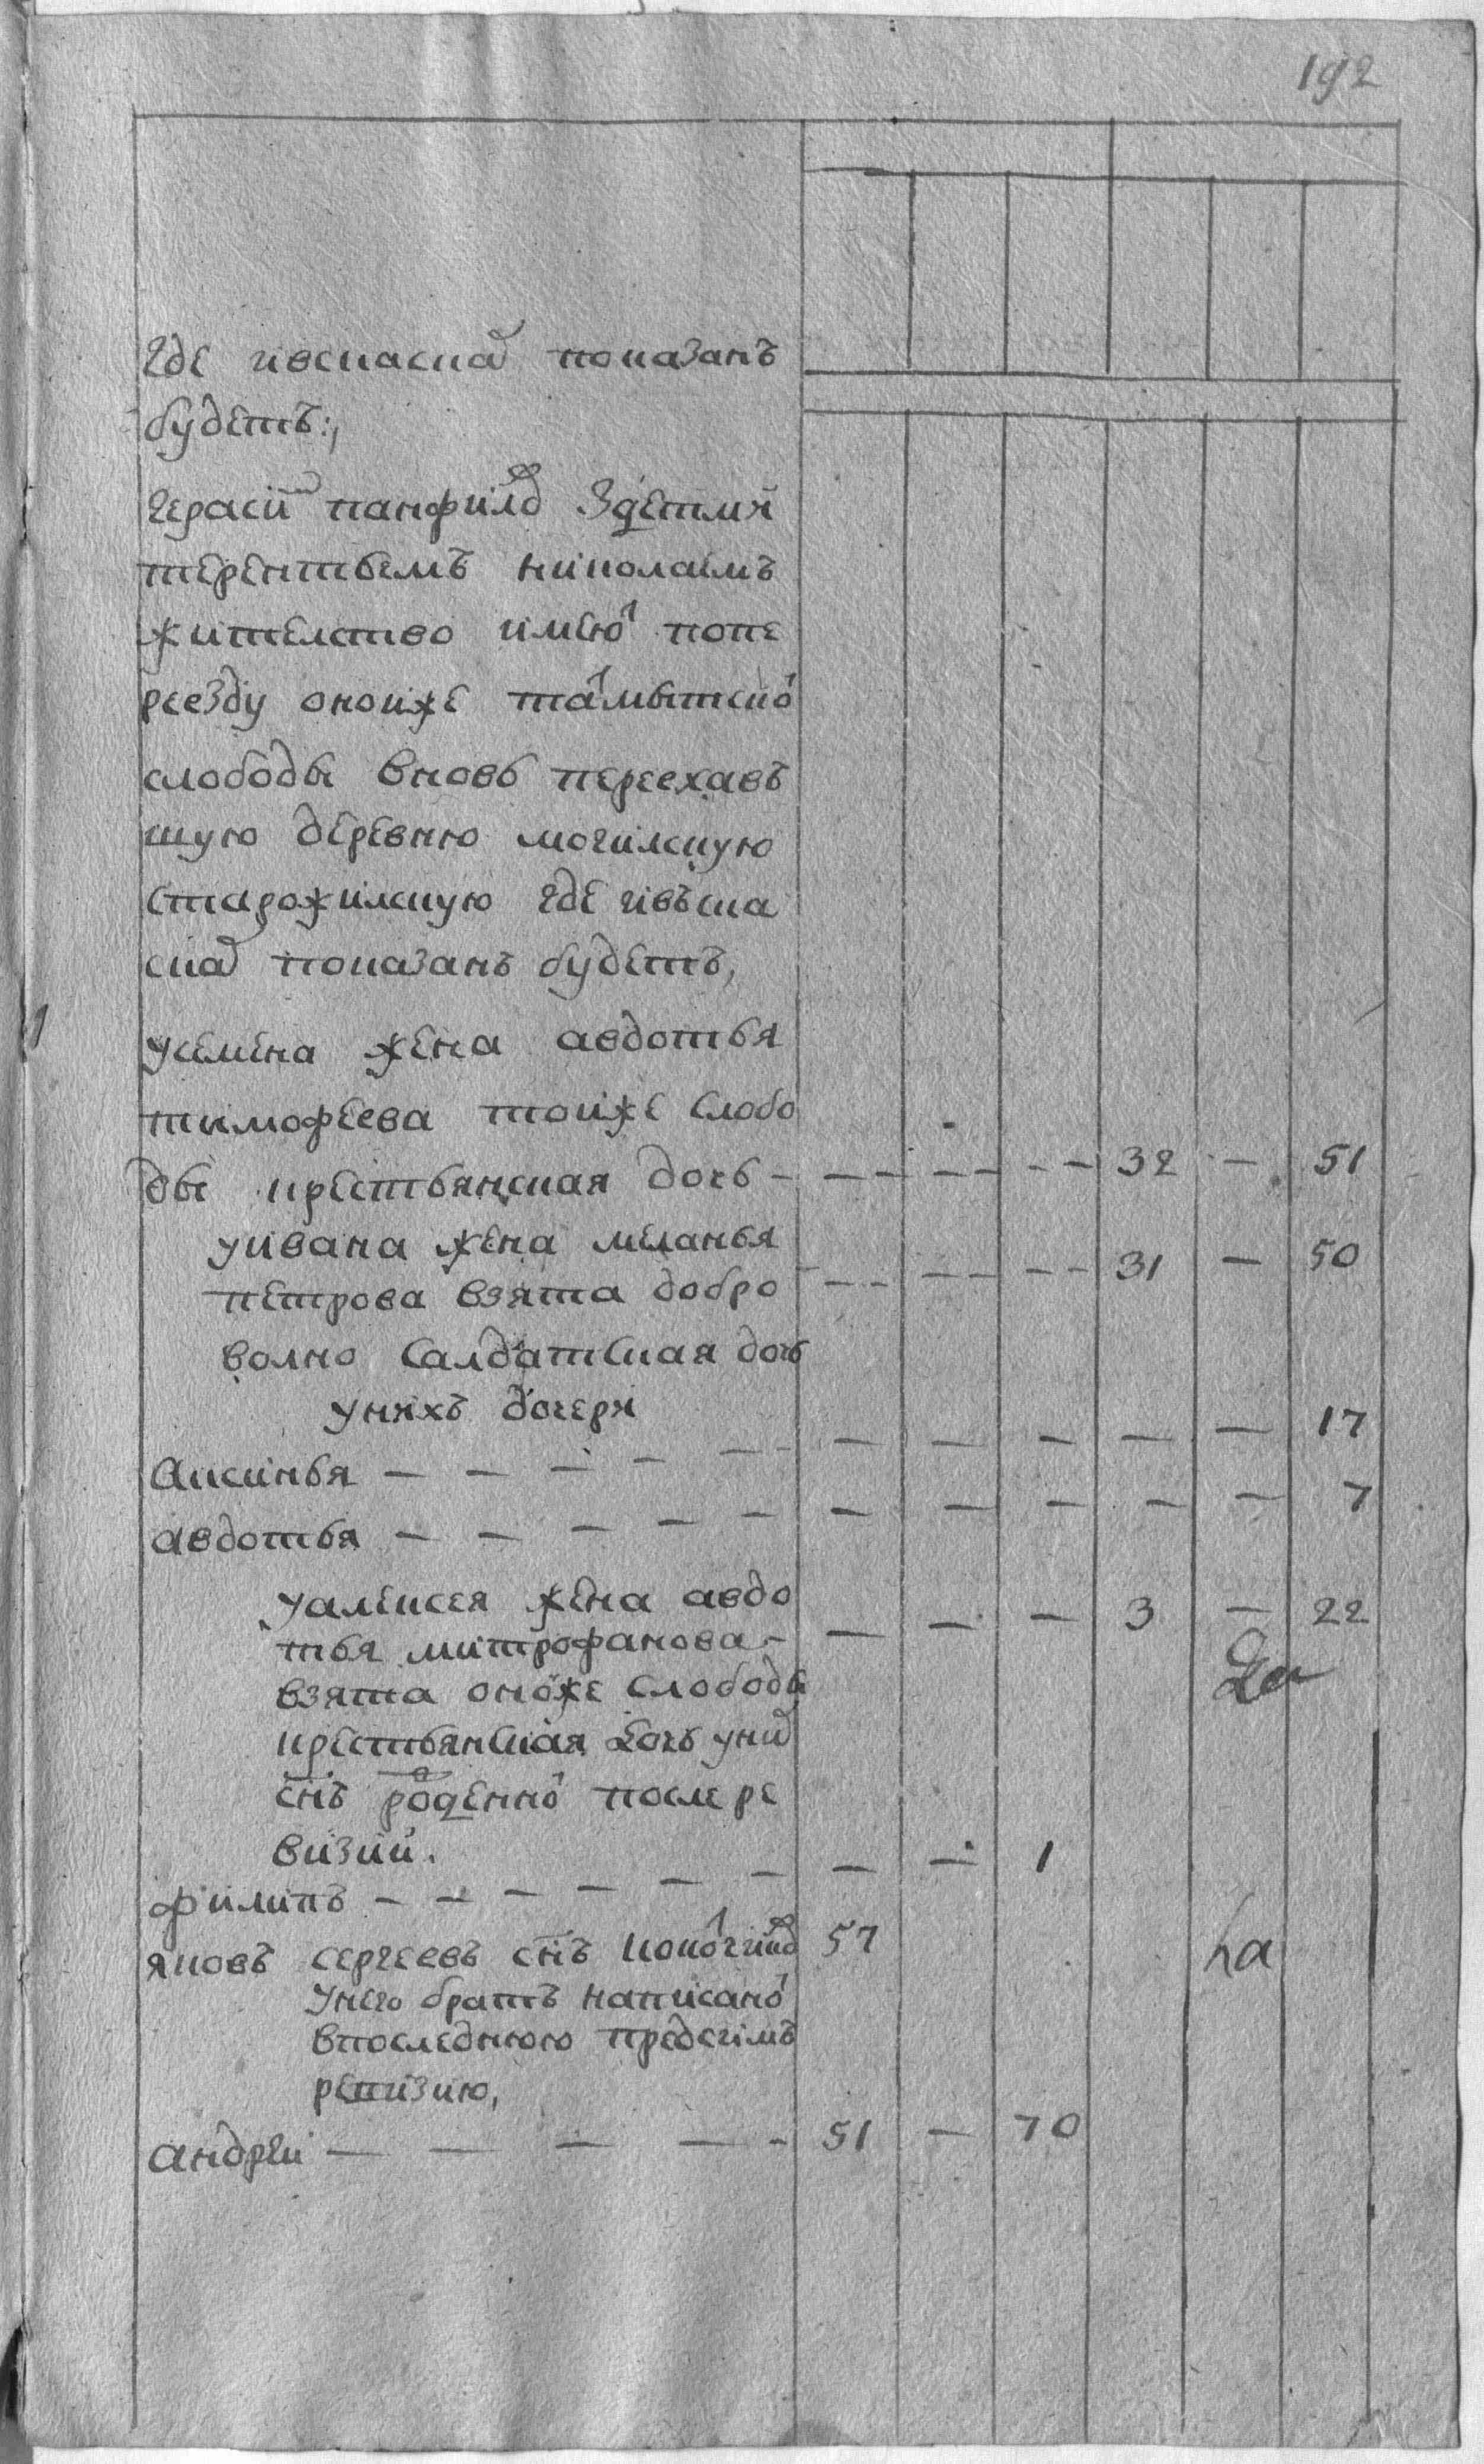 192
где ивскаскѣ показанъ
будетъ:,
герасим панфиловъ здетми
терентьемъ николаемъ
жителство имеют попе
реезду оноиже тармытской
слободы вновь переехавъ
шую деревню могилскую
старожилскую где ивъска
скѣ показанъ будетъ,
усемена жена авдотья
тимофеева тоиже слобо
ды крестьянская дочь - - - - - - - 32 - 51
уивана жена меланья
петрова взята добро - - - - - - 31 - 50
волно салдатская дочь
унихъ дочери
аксинья - - - - - - - - - - 17
авдотья - - - - - - - - - - 7
уалексея жена авдо
тья митрофанова - - - - 3 - 22
взята онойже слободы
крестьянская дочь уних
снъ рожденной послере
визии.
филипъ - - - - - - - - 1
яковъ сергеевъ снъ кокоргинъ 57
унего братъ написаной
впоследнюю предсимъ
ревизию,
андреи - - - - - 51 - 70